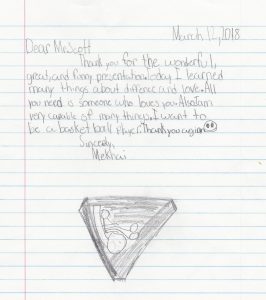 March 12, 2018
Dear Mr.Scott
Thank you for the wonderful,
great, and funny presentation today. I learned
many things about diffence and love. All
you need is someone who loves you. Also I am
very capable of many things. I want to
be a basket ball player. Thank you again
Sincerly,
Mekhai